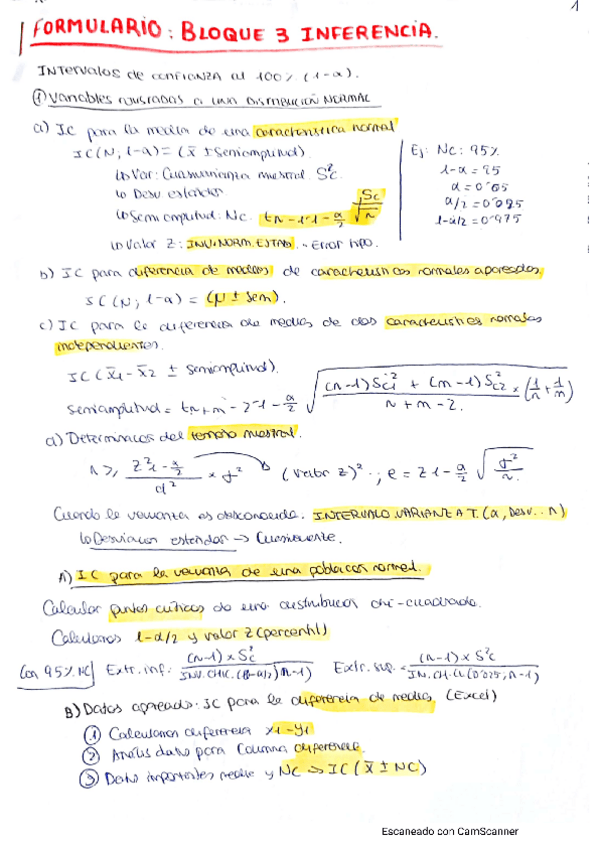 1
FORMULARIO: BLOQUE 3 INFERENCIA.
INTERVALOS de confianza al 100% (1-α).
① Variables ajustadas a una DISTRIBUCIÓN NORMAL
a) IC para la media de una característica normal
IC(N; 1-α) = (x̄ ± semiamplitud)
↳ Var: Cuasivarianza muestral. Sc²
↳ Desv estándar
↳ Semi amplitud: Nc. tn-1, 1-α/2 Sc/√n
↳ Valor Z: INV.NORM.ESTAD. - Error tipo.
Ej: NC: 95%
1-α = 95
α = 0'05
α/2 = 0'025
1-α/2 = 0'975
b) IC para diferencia de medias de características normales apareadas
IC(N; 1-α) = (N ± sem).
c) IC para la diferencia de medias de dos características normales
independientes.
IC (x̄1 - x̄2 ± semiamplitud).
Semiamplitud = tn+m-2, 1-α/2 √((n-1)Sc1² + (m-1)Sc2² / n+m-2 × (1/n + 1/m))
d) Determinación del tamaño muestral.
n ≥ Z²1-α/2 / d² × σ² (valor z)² ; e = Z1-α/2 √(σ²/n)
Cuando la varianza es desconocida. INTERVALO.VARIANZA T. (α, Desv.. n)
↳ Desviación estándar → Cuasivarianza.
A) IC para la varianza de una población normal.
Calcular puntos críticos de una distribución chi-cuadrado.
Calculamos 1-α/2 y valor Z (percentil)
Con 95% NC Extr. inf: (n-1) × Sc² / INV.CHIC.(1-α/2, n-1) Extr. sup. = (n-1) × S²c / IN.CH.C(0'025, n-1)
B) Datos apareado: IC para la diferencia de medias (Excel)
① Calculamos diferencia x1-y1
② Análisis datos para columna diferencia.
③ Datos importantes media y NC ⇒ IC (x̄ ± NC)
Escaneado con CamScanner